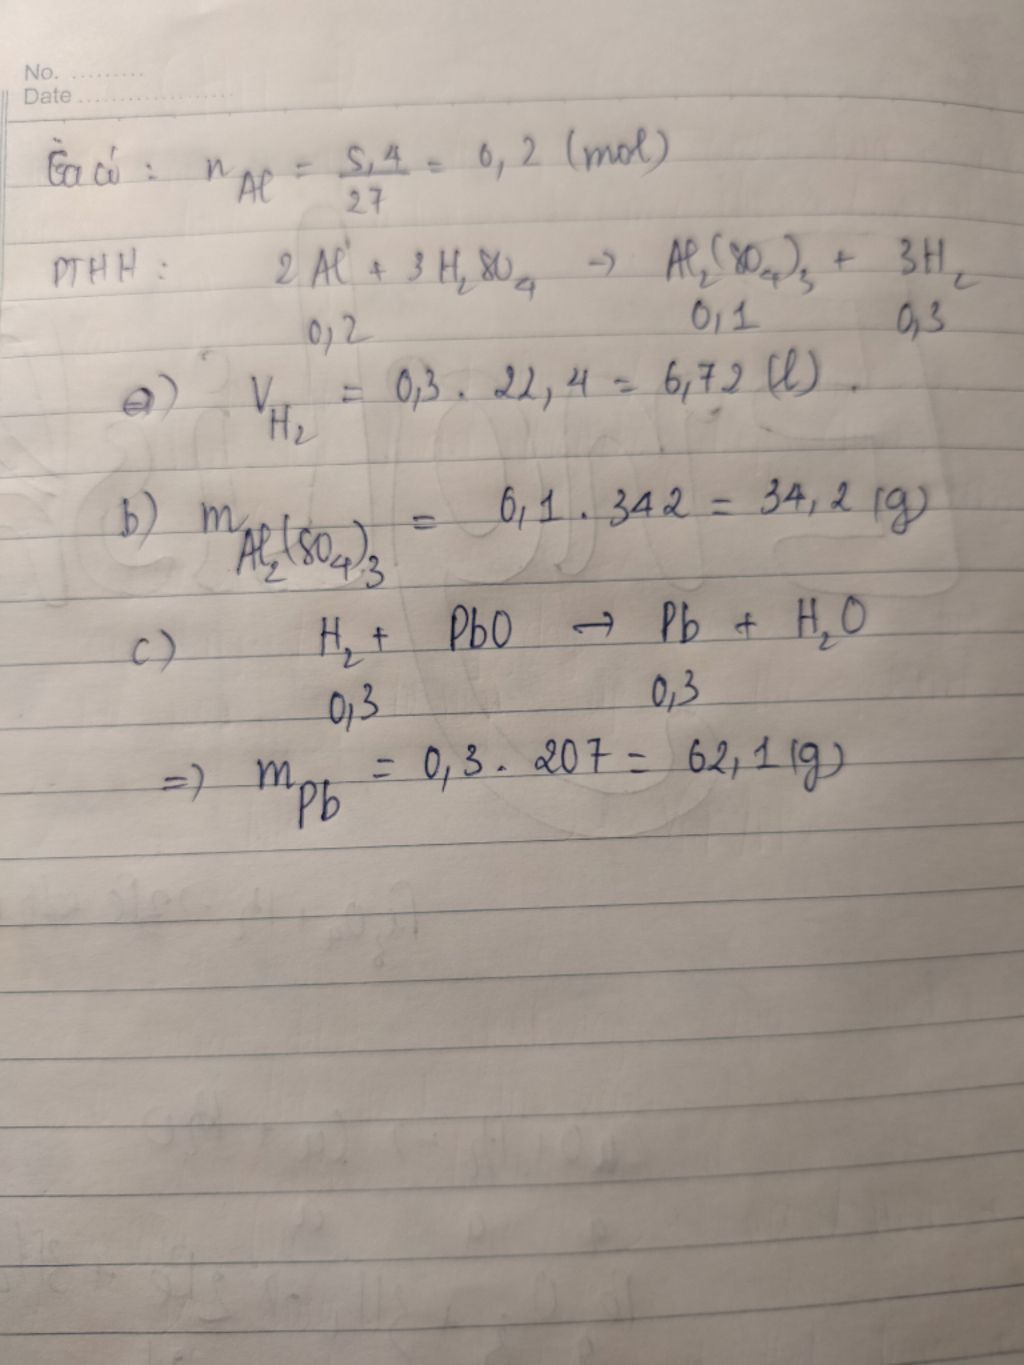 No. .........
Date ....................
Ta có : n Al = 5,4/27 = 0,2 (mol)
PTHH : 2Al + 3H₂SO₄ → Al₂(SO₄)₃ + 3H₂
0,2 0,1 0,3
a) V H₂ = 0,3 . 22,4 = 6,72 (l) .
b) m Al₂(SO₄)₃ = 0,1 . 342 = 34,2 (g)
c) H₂ + PbO → Pb + H₂O
0,3 0,3
=> m Pb = 0,3 . 207 = 62,1 (g)